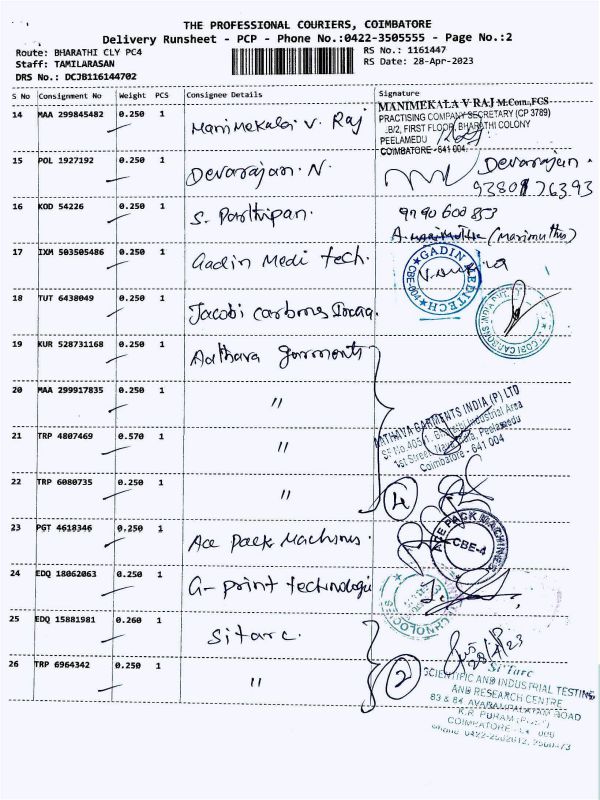 THE PROFESSIONAL COURIERS, COIMBATORE
Delivery Runsheet - PCP - Phone No.:0422-3505555 - Page No.:2
Route: BHARATHI CLY PC4
RS No.: 1161447
Staff: TAMILARASAN
RS Date: 28-Apr-2023
DRS No.: DCJB116144702
S No Consignment No Weight PCS Consignee Details Signature
14 MAA 299845482 0.250 1 Manimekalai V. Raj
MANIMEKALA V RAJ M.Com.,FCS
PRACTISING COMPANY SECRETARY (CP 3789)
B/2, FIRST FLOOR, BHARATHI COLONY
PEELAMEDU
COIMBATORE - 641 004.
15 POL 1927192 0.250 1 Devarajan. N. Devarajan.
9380176393
16 KOD 54226 0.250 1 S. Parthipan. 9790600853
(Marimuthu)
17 IXM 503505486 0.250 1 Gadin Medi tech.
GADIN MEDITECH
CBE-004
18 TUT 6438049 0.250 1 Jacobi carbons
19 KUR 528731168 0.250 1 Aathava garments
20 MAA 299917835 0.250 1 "
AATHAVA GARMENTS INDIA (P) LTD
Industrial Area
1st Street, Peelamedu
Coimbatore - 641 004
21 TRP 4807469 0.570 1 "
22 TRP 6080735 0.250 1 "
4
23 PGT 4618346 0.250 1 Ace Pack Machines.
ACE PACK MACHINES
CBE-4
24 EDQ 18062063 0.250 1 G-point technologi
25 EDQ 15881981 0.260 1 Sitarc.
28/4/23
26 TRP 6964342 0.250 1 "
2
Si'Tarc
SCIENTIFIC AND INDUSTRIAL TESTING
AND RESEARCH CENTRE
83 & 84, AVARAMPALAYAM ROAD
K.R. PURAM
COIMBATORE